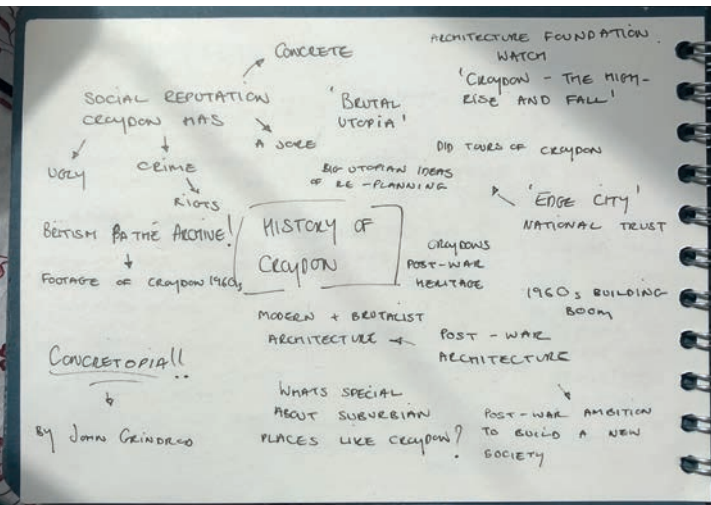 CONCRETE
SOCIAL REPUTATION
CROYDON HAS
UGLY
CRIME
RIOTS
A JOKE
'BRUTAL
UTOPIA'
ARCHITECTURE FOUNDATION.
WATCH
'CROYDON - THE HIGH-
RISE AND FALL'
DID TOURS OF CROYDON
'EDGE CITY'
NATIONAL TRUST
BIG UTOPIAN IDEAS
OF RE-PLANNING
BRITISH PATHÉ ARCHIVE!
FOOTAGE OF CROYDON 1960s
HISTORY OF
CROYDON
CROYDONS
POST-WAR
HERITAGE
1960s BUILDING
BOOM
MODERN + BRUTALIST
ARCHITECTURE
POST-WAR
ARCHITECTURE
CONCRETOPIA!!
BY JOHN GRINDROD
WHATS SPECIAL
ABOUT SUBURBIAN
PLACES LIKE CROYDON?
POST-WAR AMBITION
TO BUILD A NEW
SOCIETY